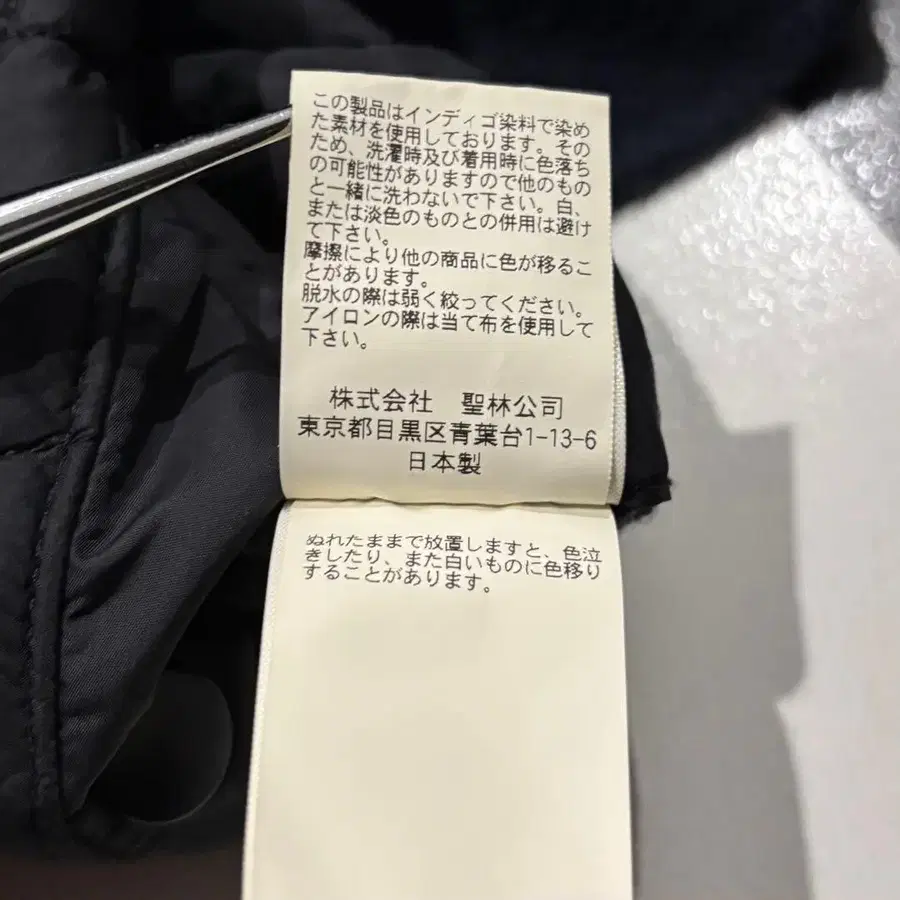 この製品はインディゴ染料で染め
た素材を使用しております。その
ため、洗濯時及び着用時に色落ち
の可能性がありますので他のもの
と一緒に洗わないで下さい。白、
または淡色のものとの併用は避け
て下さい。
摩擦により他の商品に色が移るこ
とがあります。
脱水の際は弱く絞ってください。
アイロンの際は当て布を使用して
下さい。
株式会社　聖林公司
東京都目黒区青葉台1-13-6
日本製
ぬれたままで放置しますと、色泣
きしたり、また白いものに色移り
することがあります。